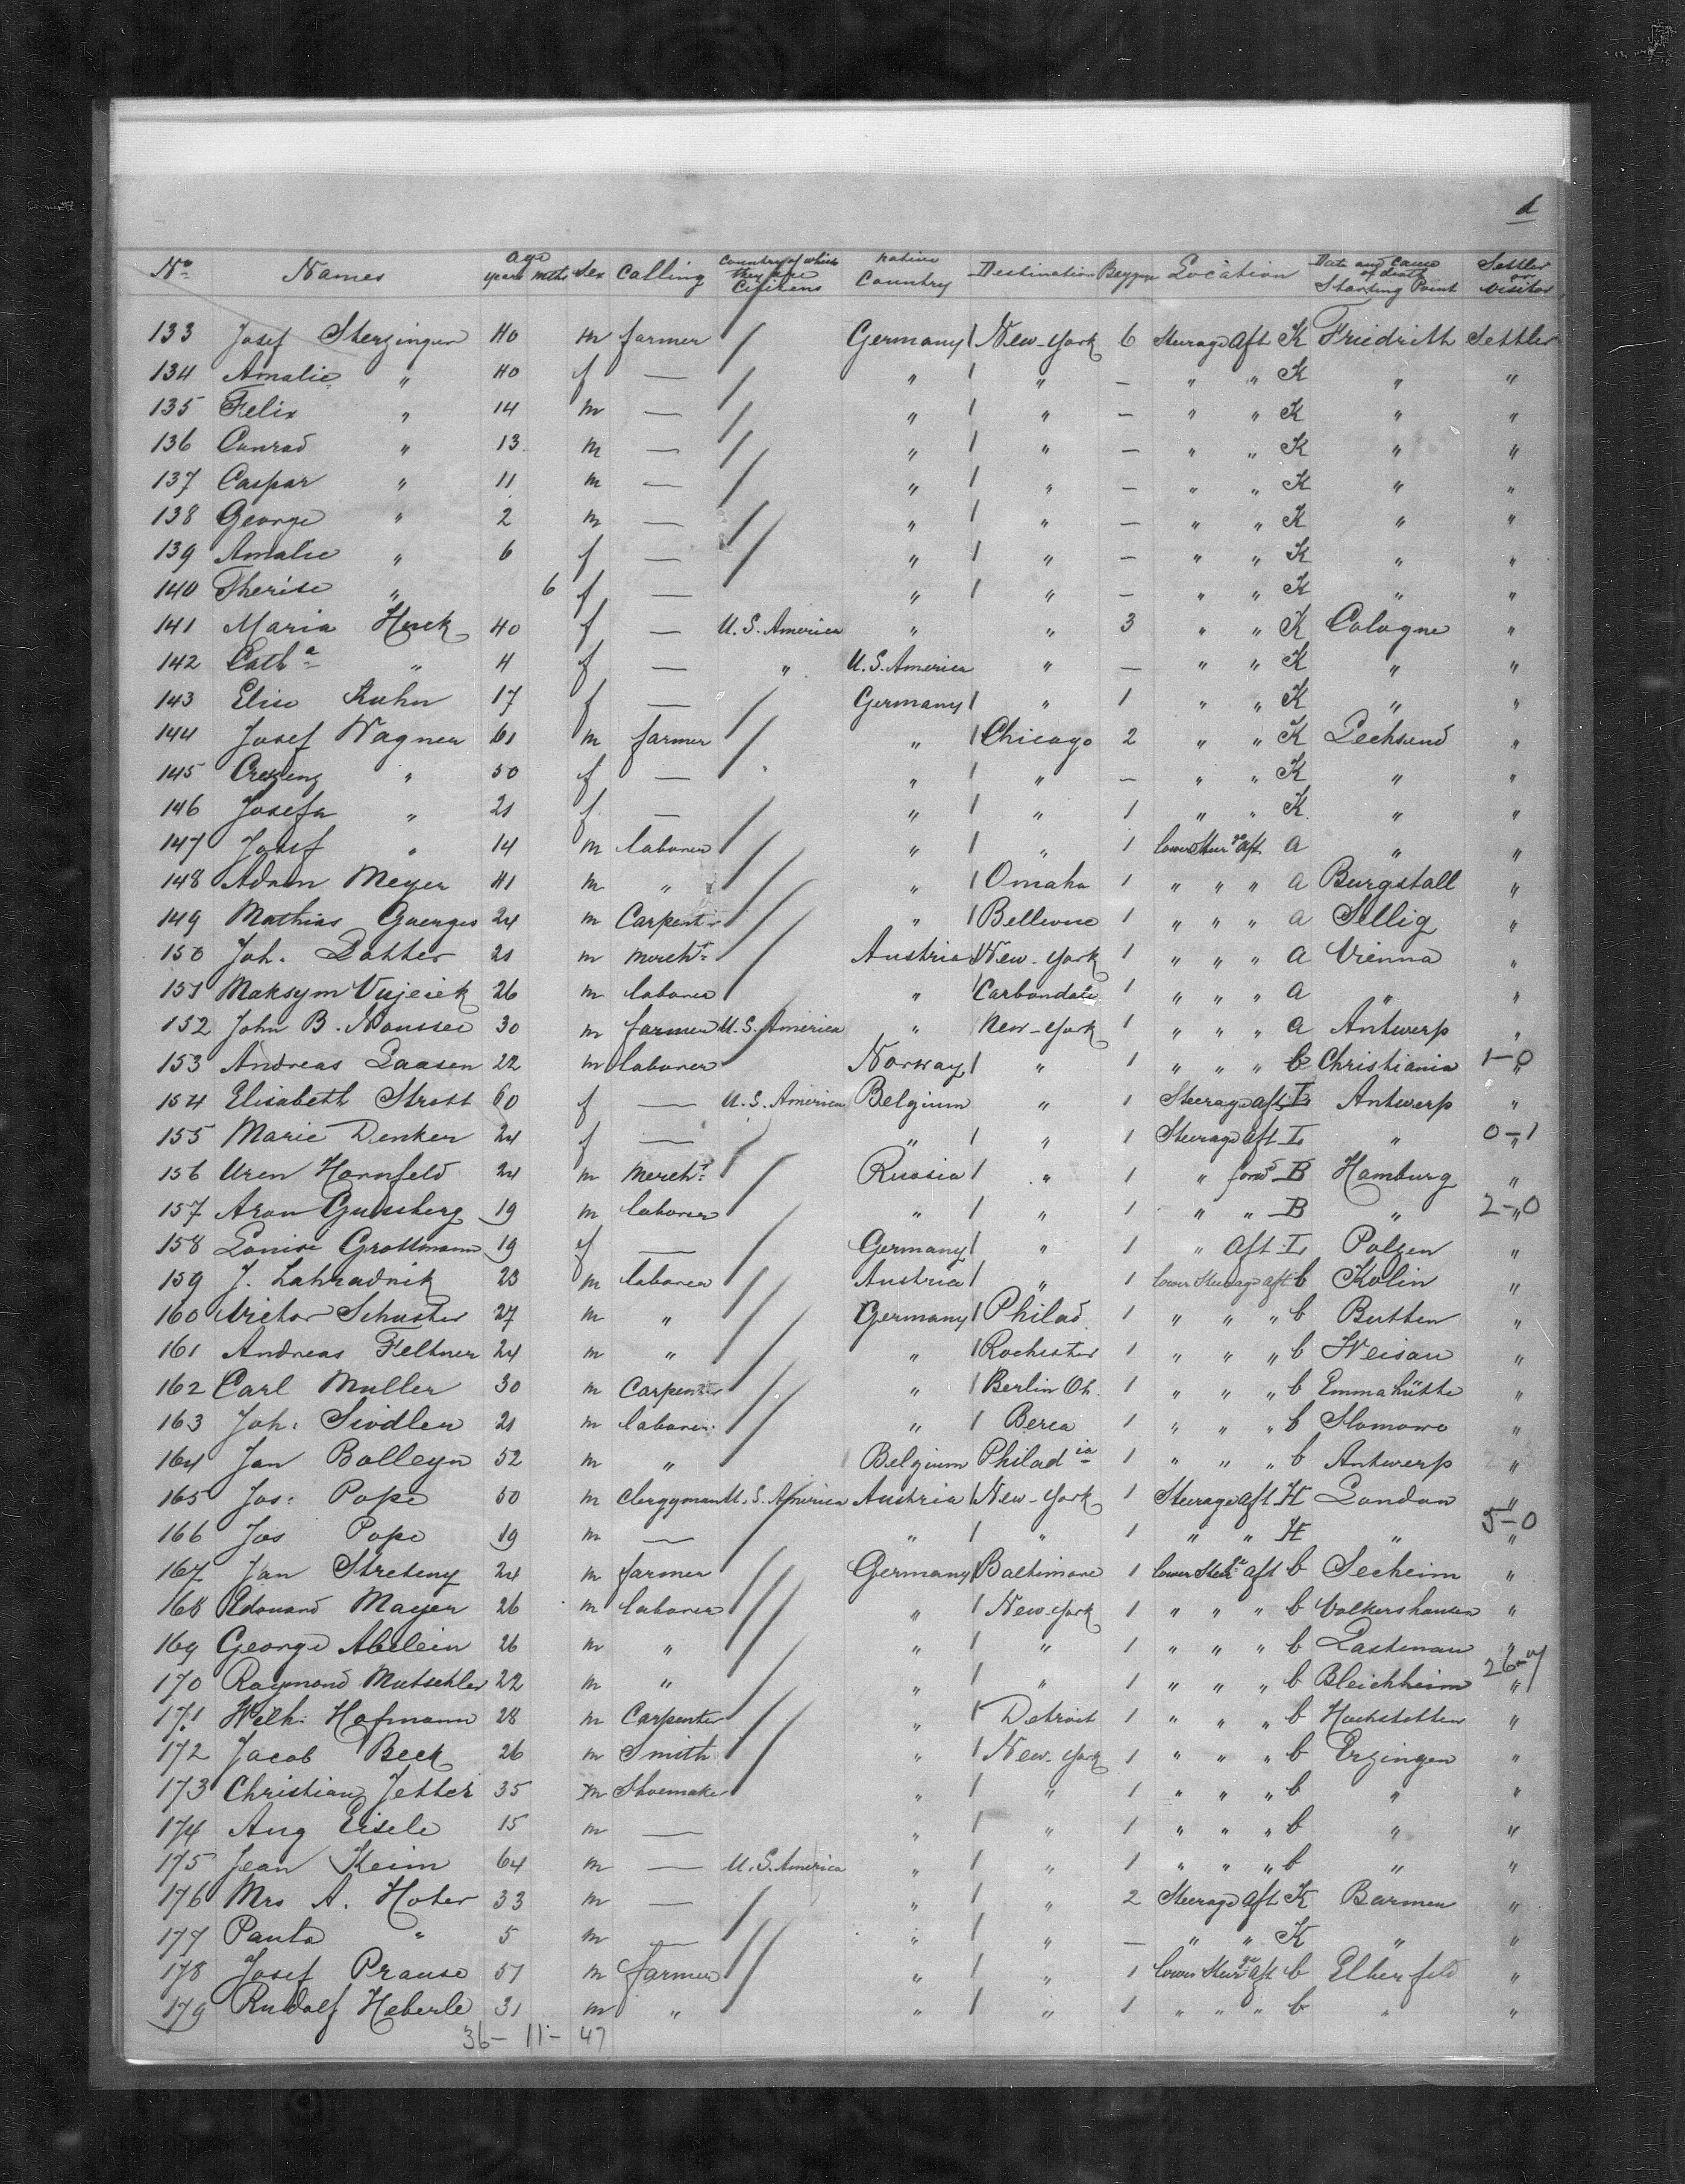 d
No Names age years mths Sex Calling Country of which they are Citizens native Country Destination Location Date and Cause of death Starting Point Settler or visitor
133 Josef Sterzinger 40 m farmer / Germany / New-York 6 Steerage aft K Friedrith Settler
134 Amalie " 40 f — / " / " — " " K " "
135 Felix " 14 m — / " / " — " " K " "
136 Conrad " 13 m — / " / " — " " K " "
137 Caspar " 11 m — / " / " — " " K " "
138 George " 2 m — / " / " — " " K " "
139 Amalie " 6 f — / " / " — " " K " "
140 Therise " 6 f — " / " — " " K " "
141 Maria Huck 40 f — U.S. America " " 3 " " K Cologne "
142 Cath a " 4 f — " U.S. America " — " " K " "
143 Elise Kuhn 17 f — / Germany / " 1 " " K " "
144 Josef Wagner 61 m farmer / " / Chicago 2 " " K Pechsend "
145 Crezenz " 50 f — " / " — " " K " "
146 Josefa " 21 f — / " / " 1 " " K " "
147 Josef " 14 m laborer / " / " 1 lower Steer ge aft a " "
148 Adam Meyer 41 m " / " / Omaha 1 " " " a Burgstall "
149 Mathias Guerges 24 m Carpenter / " / Bellevue 1 " " " a Sellig "
150 Joh. Datter 21 m mercht / Austria / New-York 1 " " " a Vienna "
151 Maksym Vujeiek 26 m laborer / " / Carbondale 1 " " " a " "
152 John B. Noussee 30 m farmer U.S. America " New-York 1 " " " a Antwerp "
153 Andreas Laasen 22 m laborer Norway / " 1 " " " b Christiania 1-0 "
154 Elisabeth Strott 60 f — U.S. America Belgium " 1 Steerage aft L Antwerp "
155 Marie Denker 24 f — / " / " 1 Steerage aft L " 0-1 "
156 Uren Hornfeld 24 m Mercht / Russia / " 1 " ford B Hamburg "
157 Aron Gussberg 19 m laborer / " / " 1 " " B " 2-0 "
158 Louise Grottmann 19 f — / Germany / " 1 " aft L Polzen "
159 J. Zahradnik 23 m laborer / Austria / " 1 lower Steerage aft b Kolin "
160 Victor Schuster 27 m " / Germany / Philad. 1 " " " b Butten "
161 Andreas Feltner 24 m " / " / Rochester 1 " " " b Weisau "
162 Carl Muller 30 m Carpenter / " / Berlin Oh. 1 " " " b Emmahütte "
163 Joh: Sivdler 21 m laborer / " / Berea 1 " " " b Slomowo "
164 Jan Bolleyn 52 m " / Belgium Philad ia 1 " " " b Antwerp "
165 Jos: Pope 50 m Clergyman U.S. America Austria / New-York 1 Steerage aft H London "
166 Jos Pope 19 m — / " / " 1 " " H " 5-0 "
167 Jan Streteny 24 m farmer / Germany / Baltimore 1 lower Steer ge aft b Secheim "
168 Edouard Mayer 26 m laborer / " / New-York 1 " " " b Volkershausen "
169 George Abelein 26 m " / " / " 1 " " " b Pastenau "
170 Raymond Mutschler 22 m " / " / " 1 " " " b Bleichheim 26- "
171 Wilh: Hofmann 28 m Carpenter / " / Detroit 1 " " " b Hochstetten "
172 Jacob Beck 26 m Smith / " / New-York 1 " " " b Erzingen "
173 Christian Jetter 35 m Shoemaker / " / " 1 " " " b " "
174 Aug Eisele 15 m — " / " 1 " " " b " "
175 Jean Keim 64 m — U.S. America " / " 1 " " " b " "
176 Mrs A. Hoter 33 m — / " / " 2 Steerage aft K Barmen "
177 Panta " 5 m — / " / " — " " K " "
178 Josef Prause 51 m farmer / " / " 1 lower Steer ge aft b Elberfeld "
179 Rudolf Heberle 31 m " / " / " 1 " " " b " "
36- 11- 47